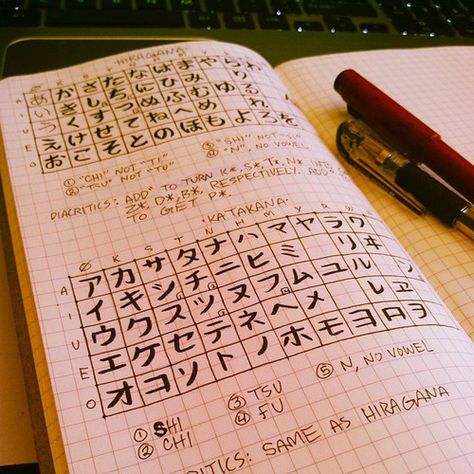 HIRAGANA
A あ か さ た な は ま や ら わ
I い き し ち に ひ み り
U う く す つ ぬ ふ む ゆ る
E え け せ て ね へ め れ
O お こ そ と の ほ も よ ろ を
① "CHI" NOT "TI"
② "TSU" NOT "TU"
③ "SHI" NOT "SI"
"N", NO VOWEL
DIACRITICS: ADD TO TURN K*, S*, T*, INTO
Z*, D*, B*, RESPECTIVELY. ADD
TO GET P*.
KATAKANA
Ø K S T N H M Y R W
A ア カ サ タ ナ ハ マ ヤ ラ ワ
I イ キ シ チ ニ ヒ ミ リ ヰ
U ウ ク ス ツ ヌ フ ム ユ ル ン
E エ ケ セ テ ネ ヘ メ レ ヱ
O オ コ ソ ト ノ ホ モ ヨ ロ ヲ
① SHI ③ TSU ⑤ N, NO VOWEL
② CHI ④ FU
CRITICS: SAME AS HIRAGANA